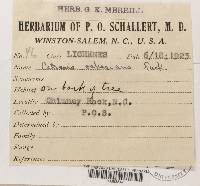 HERB. G. K. MERRILL
HERBARIUM OF P. O. SCHALLERT, M. D.
WINSTON-SALEM, N. C., U. S. A.
No. LICHENES Date 6/10/1923
Name Cetraria Tuck.
Synonyms
Habitat On bark of tree
Locality Chimney Rock, N.C.
Collected by P.O.S.
Determined by
Family
Range
Reference